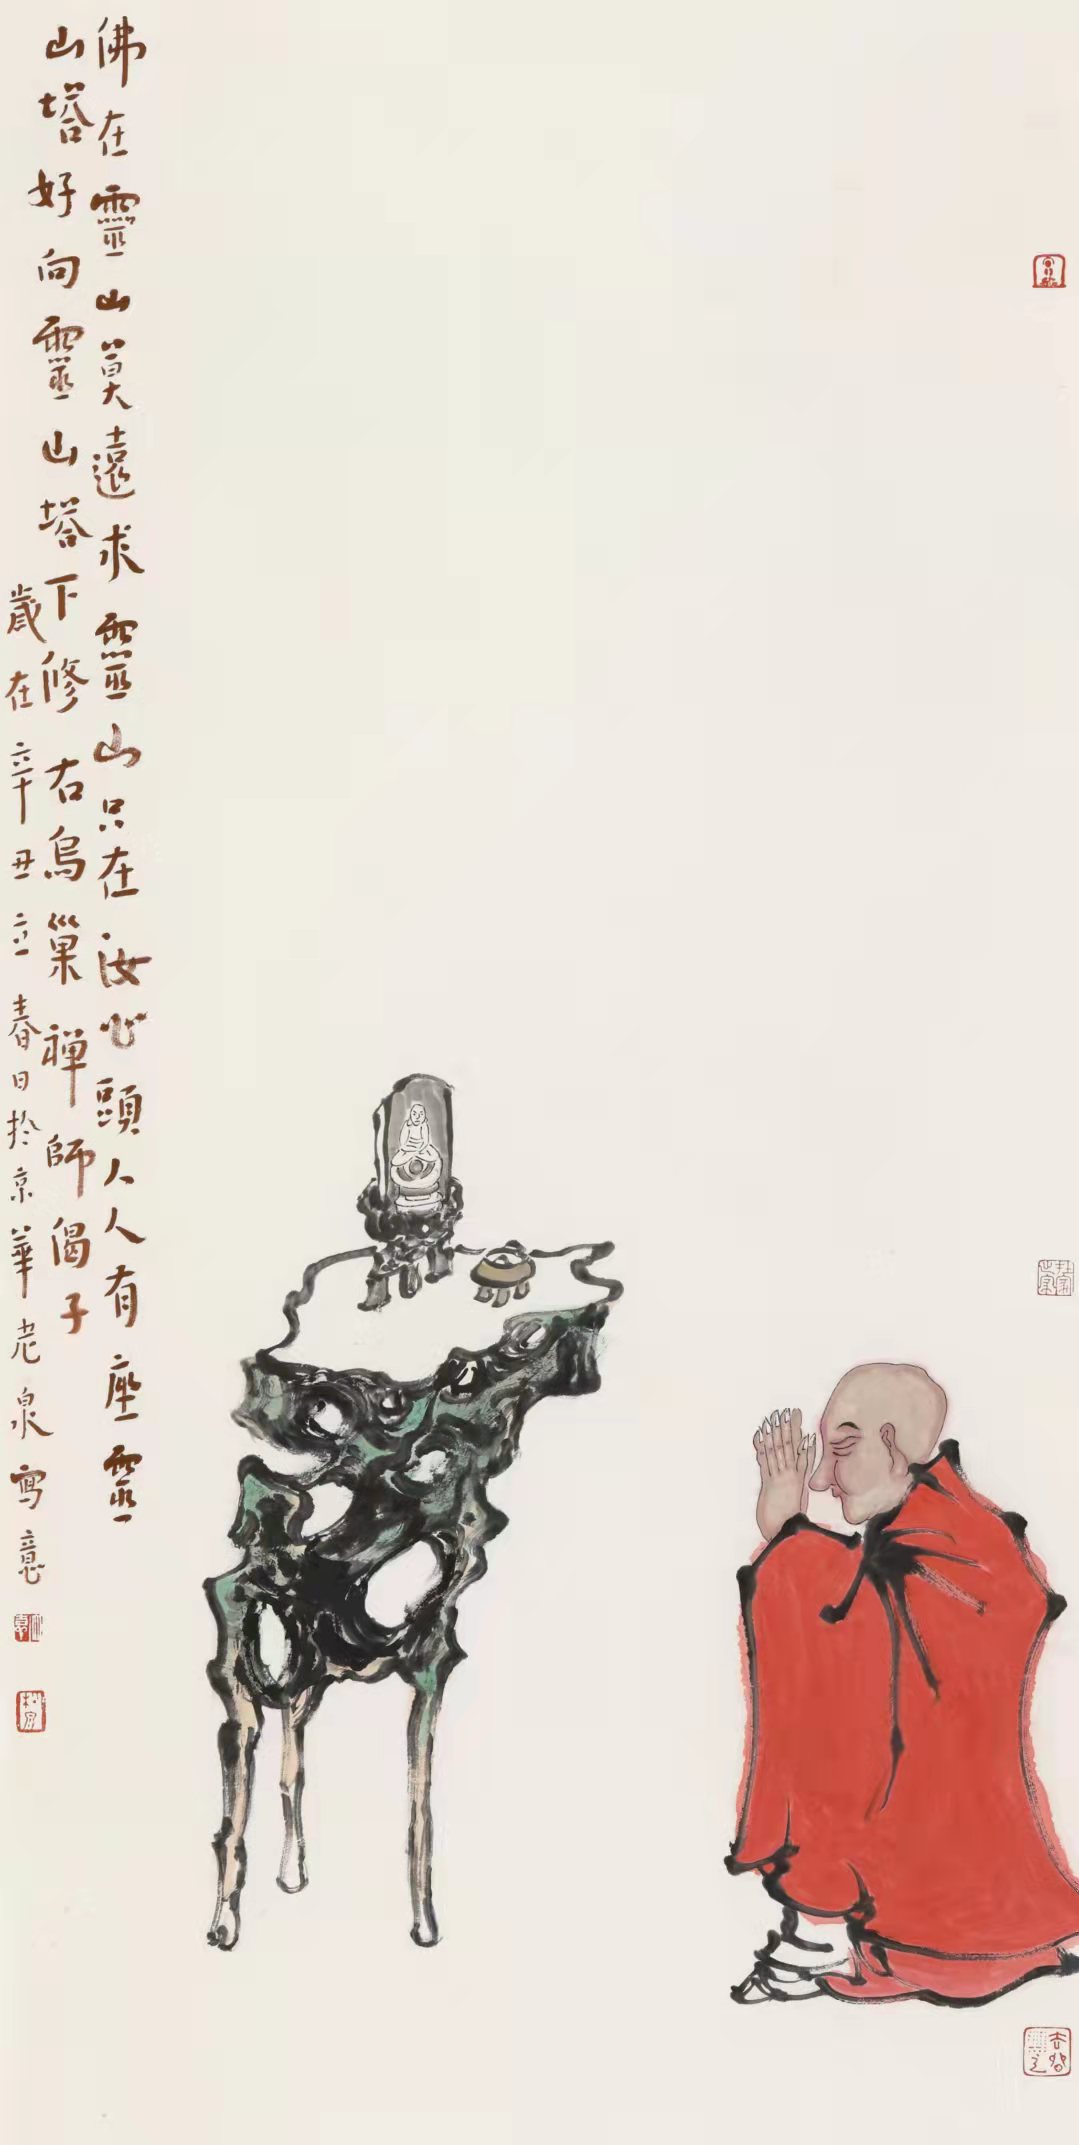 佛在靈山莫遠求靈山只在汝心頭人人有座靈
山塔好向靈山塔下修右烏巢禅師偈子
歲在辛丑立春日於京華老泉寫意